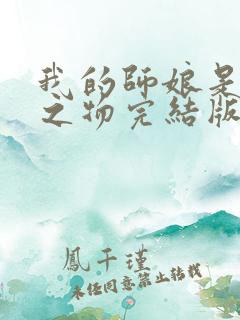 我的師娘是
之物完結版
鳳千瑾
未經同意禁止轉載